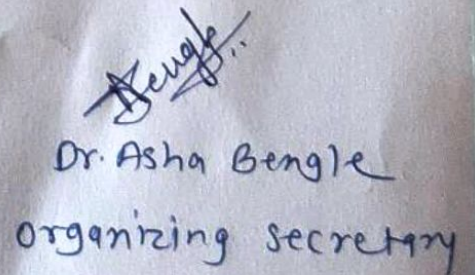 Bengle..
Dr. Asha Bengle
organizing secretary